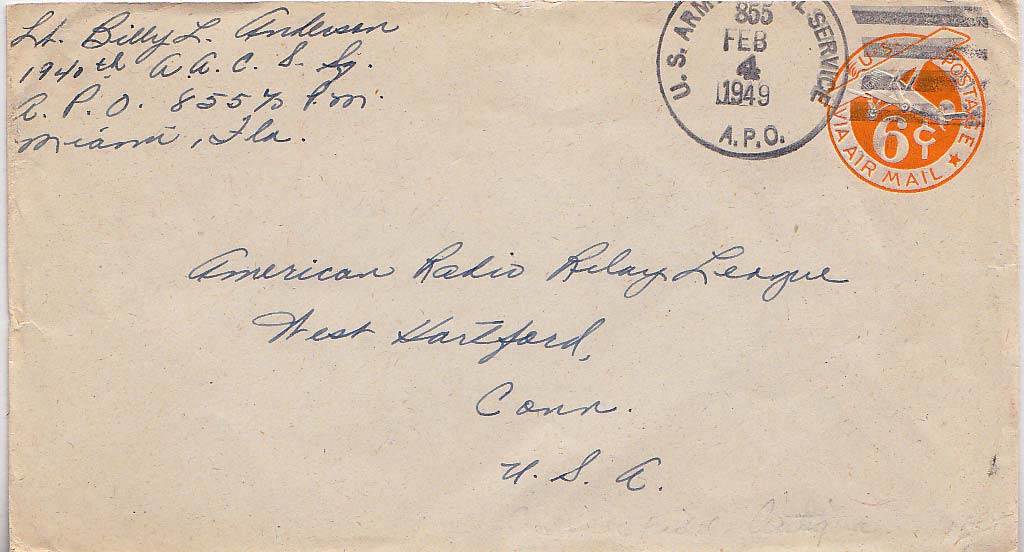 Lt. Billy L. Anderson
1940th A A. C. S. Sq.
A. P. O. 855 % P.M.
Miami, Fla.
U. S. ARMY SERVICE
855
FEB
4
1949
A.P.O.
U.S. POSTAGE
6¢
VIA AIR MAIL
American Radio Relay League
West Hartford,
Conn.
U. S. A.
Field Antigua